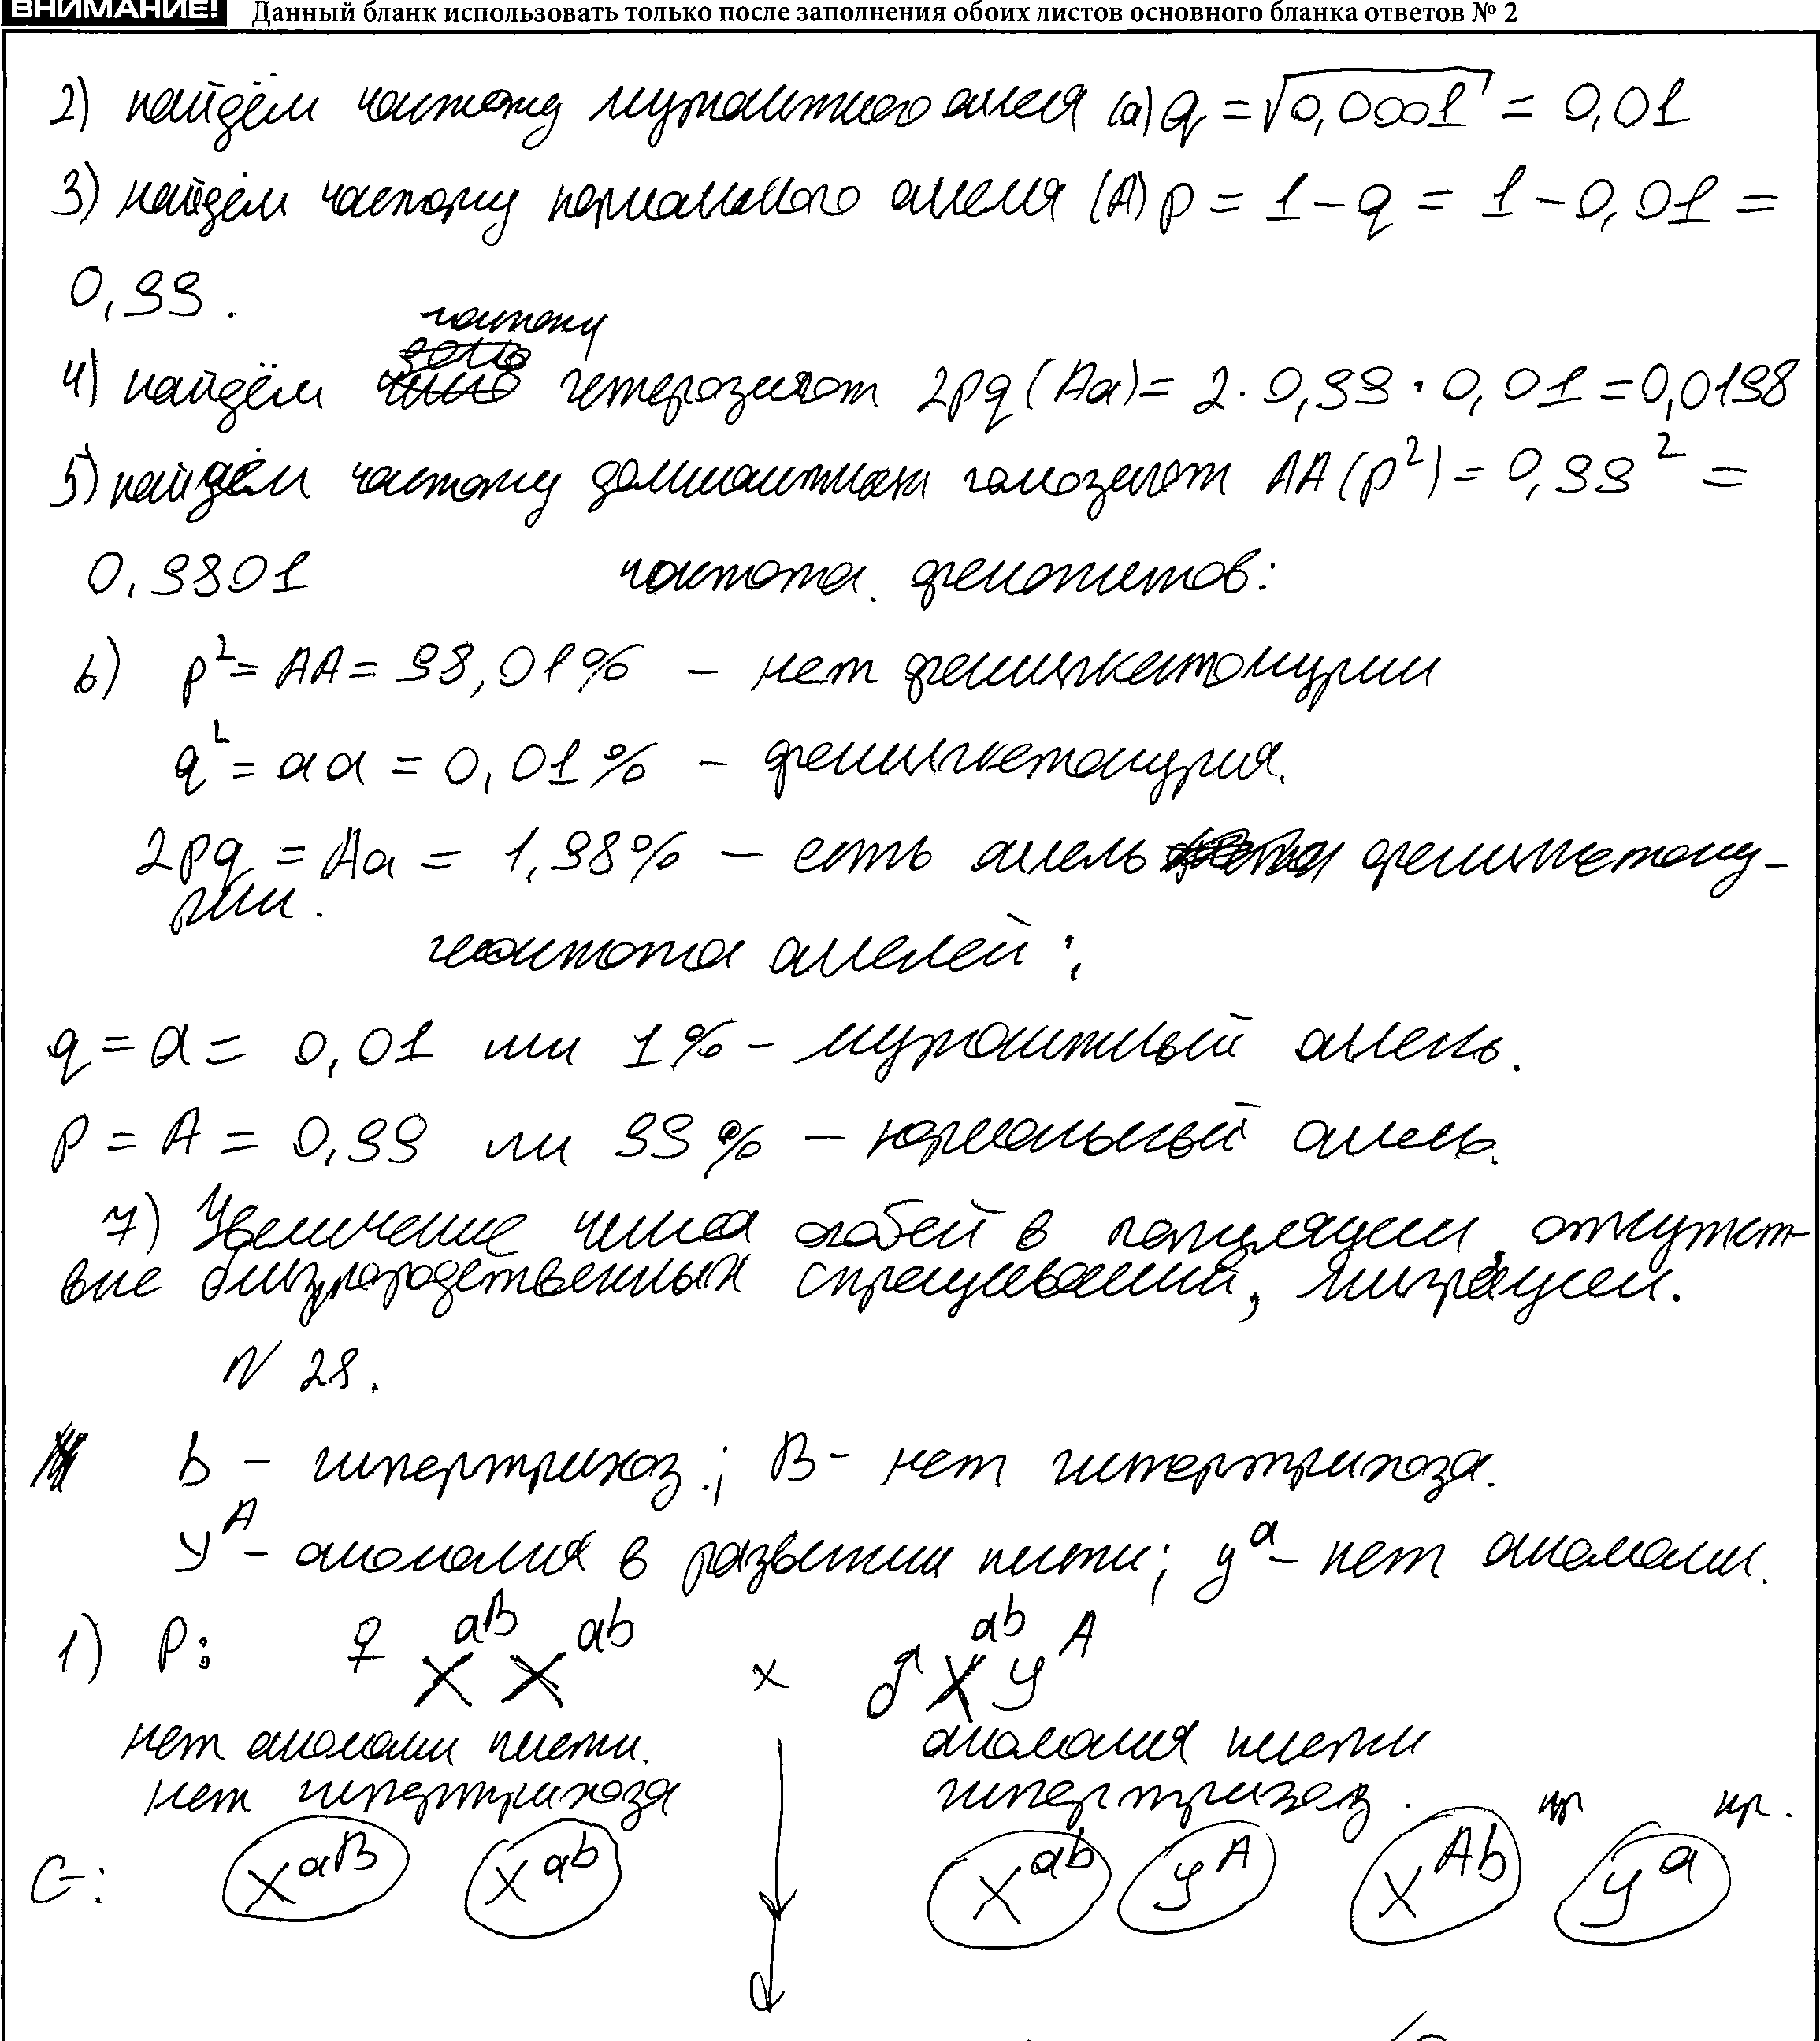 ВНИМАНИЕ! Данный бланк использовать только после заполнения обоих листов основного бланка ответов № 2
2) найдём частоту мутантного аллеля (a) q = √0,0001 = 0,01
3) найдём частоту нормального аллеля (A) p = 1 - q = 1 - 0,01 =
0,99.
частоту
4) найдём гетерозигот 2pq (Aa) = 2 · 0,99 · 0,01 = 0,0198
5) найдём частоту доминантных гомозигот AA (p²) = 0,99² =
0,9801 частота фенотипов:
6) p² = AA = 98,01% - нет фенилкетонурии
q² = aa = 0,01% - фенилкетонурия.
2pq = Aa = 1,98% - есть аллель фенилкетону-
рии.
частота аллелей:
q = a = 0,01 или 1% - мутантный аллель.
p = A = 0,99 или 99% - нормальный аллель.
7) Увеличение числа особей в популяции, отсутст-
вие близкородственных скрещиваний, миграции.
N 28.
b - гипертрихоз; B - нет гипертрихоза.
Y^A - аномалия в развитии кисти; y^a - нет аномалии.
1) P: ♀ X^aB X^ab x ♂ X^ab Y^A
нет аномалии кисти. аномалия кисти
нет гипертрихоза гипертрихоз. кр кр.
G: X^aB X^ab X^ab Y^A X^Ab Y^a